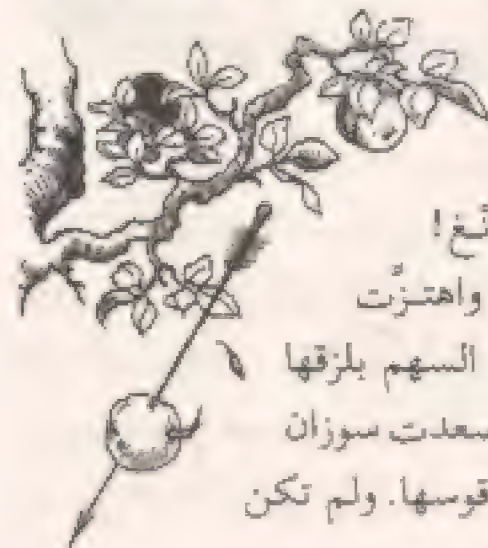 تنغ!
واهتزّت
السهم بلزقها
سعدت سوزان
قوسها. ولم تكن